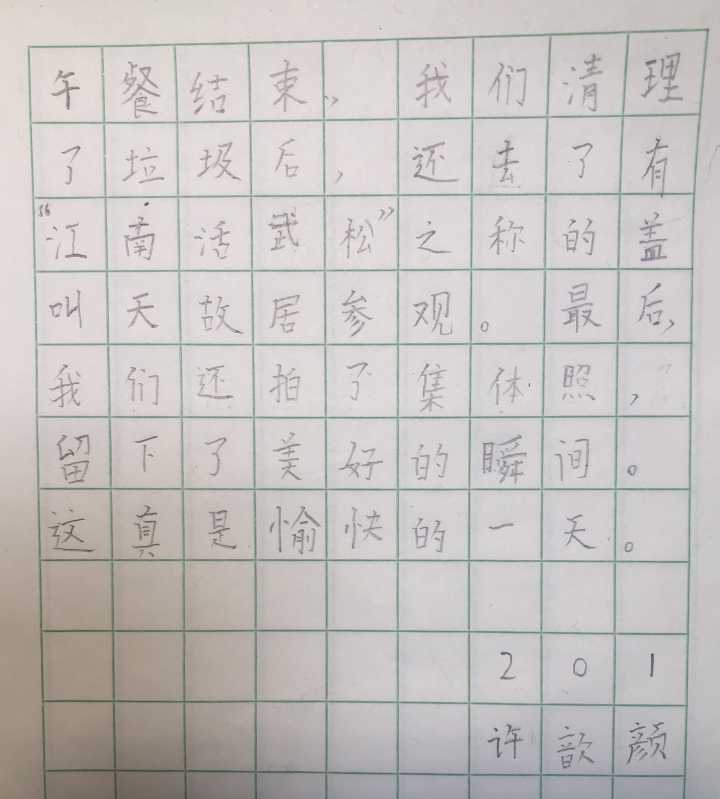 午餐结束，我们清理
了垃圾后，还去了有
“江南活武松”之称的盖
叫天故居参观。最后，
我们还拍了集体照，
留下了美好的瞬间。
这真是愉快的一天。
201
许歆颜